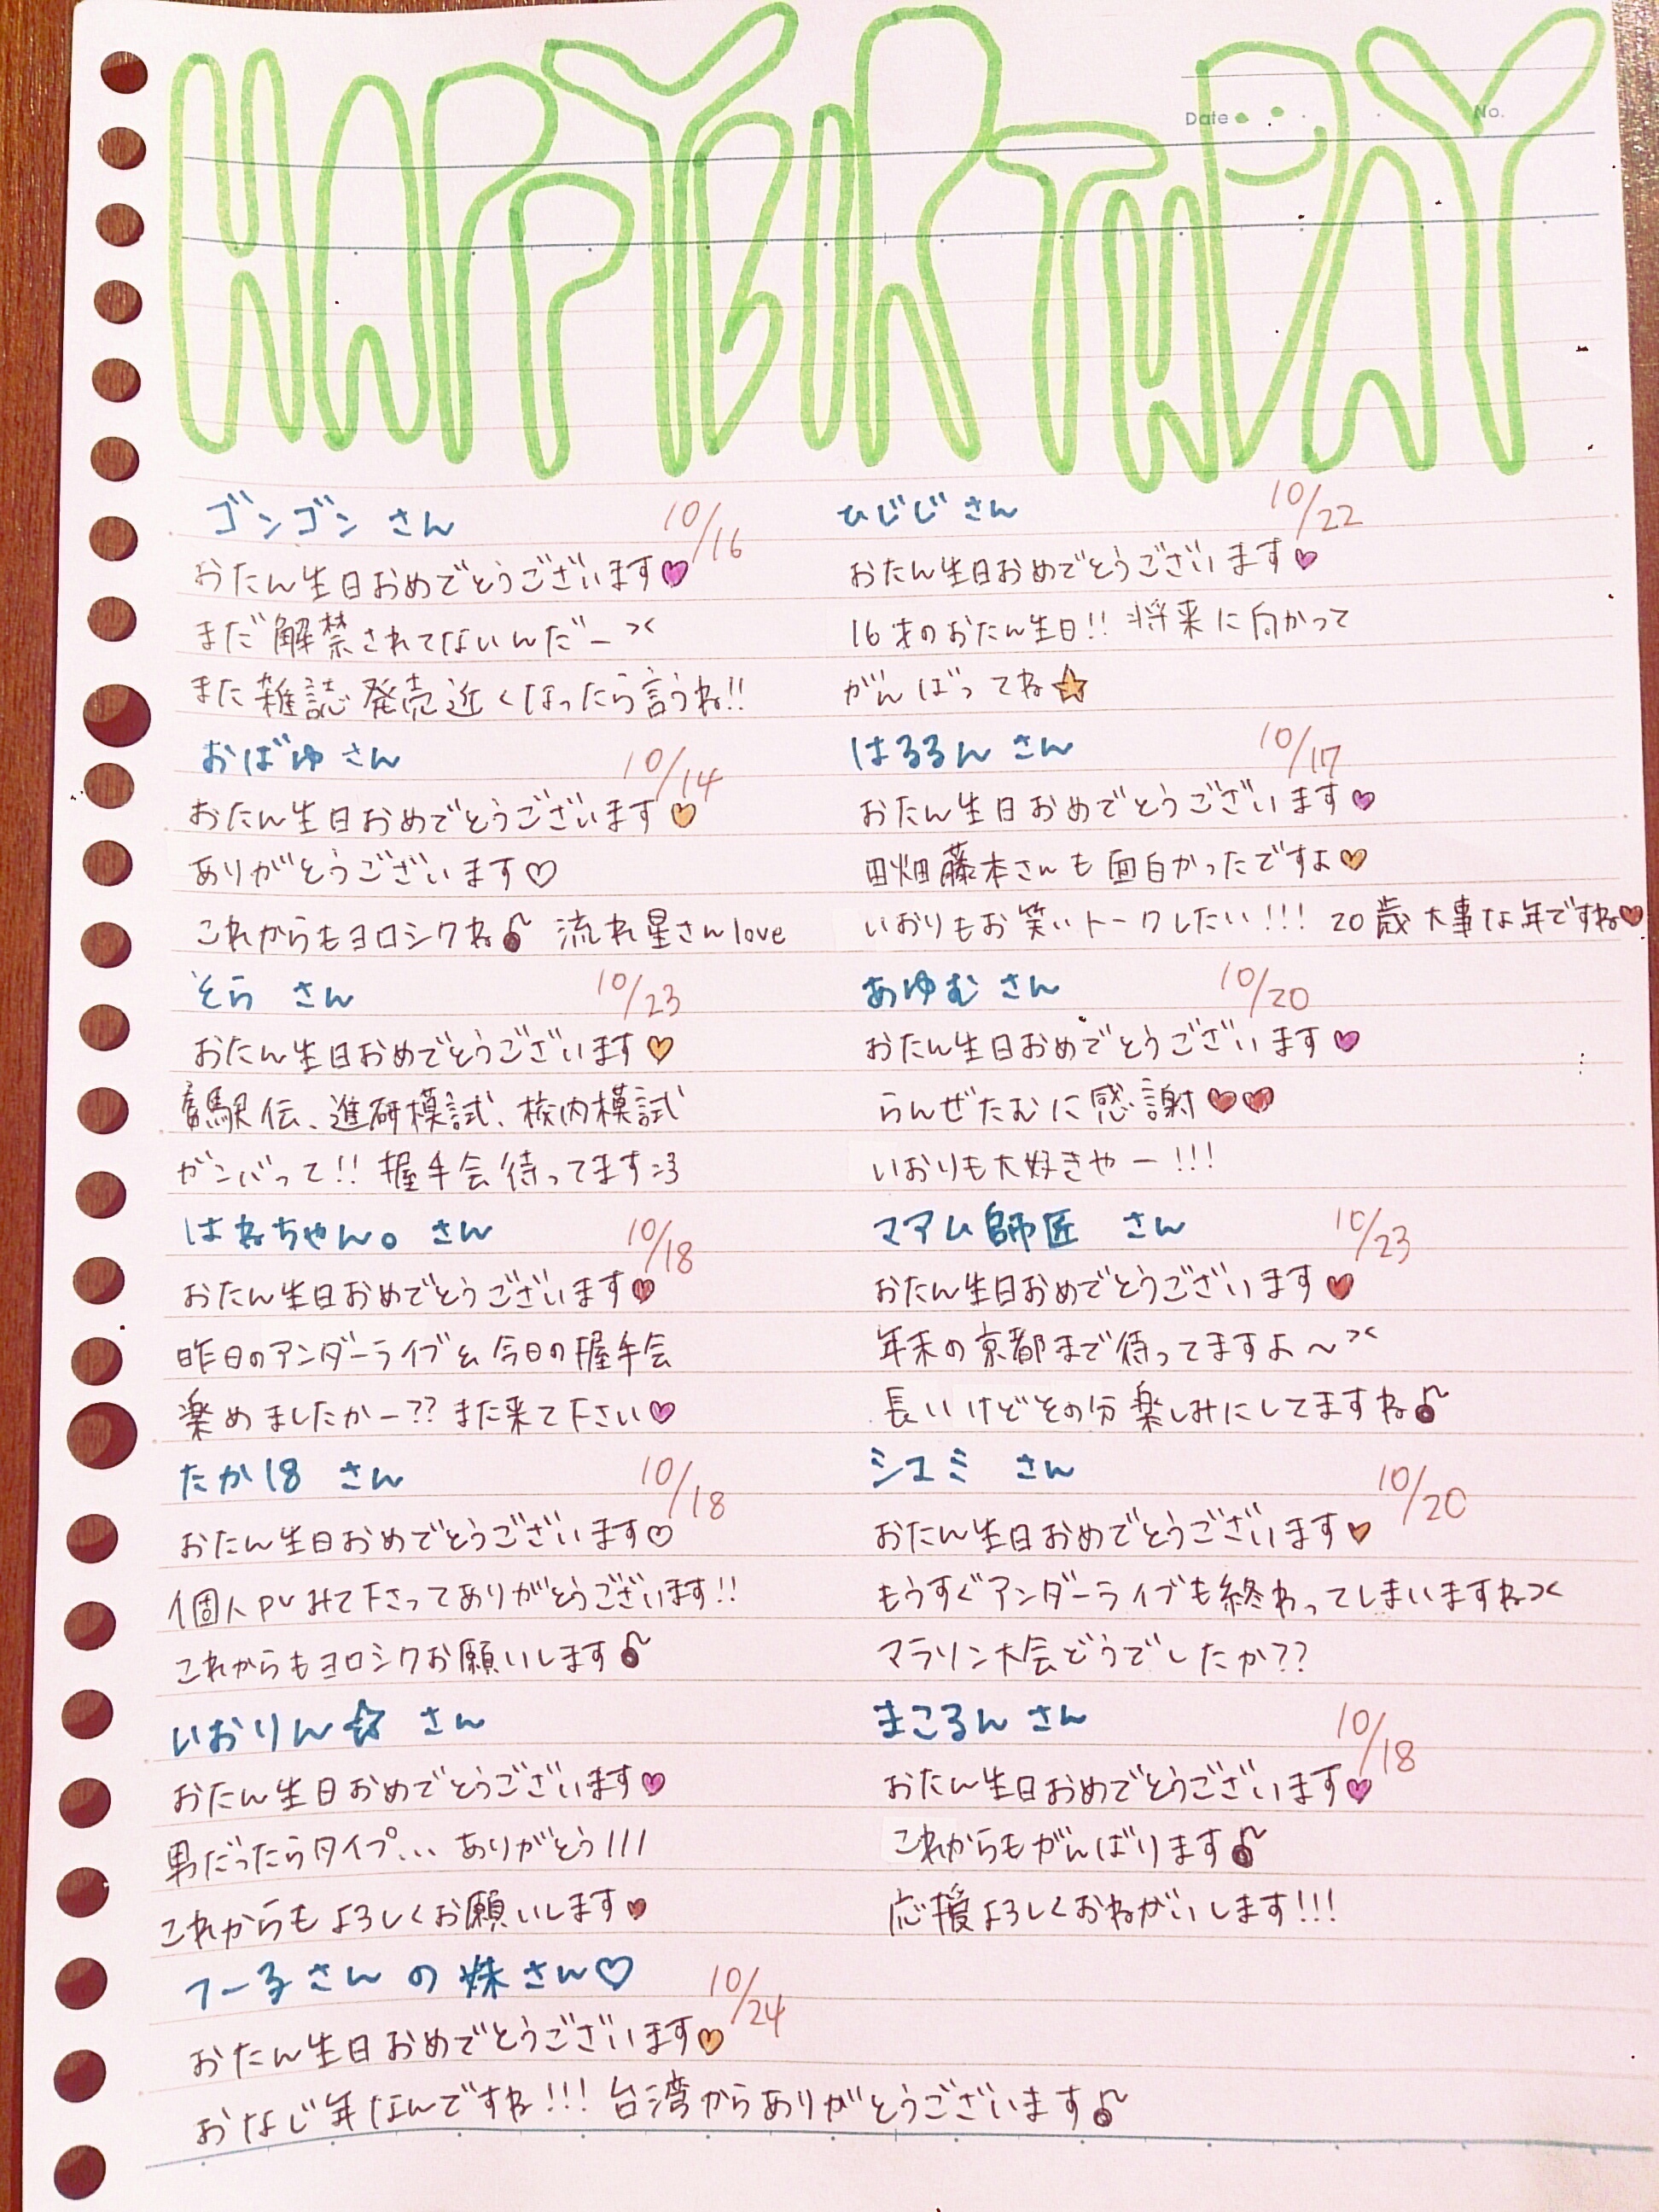 HAPPY BIRTHDAY
Date
No.
ゴンゴン さん 10/16
おたん生日おめでとうございます♥
まだ解禁されてないんだー><
また雑誌発売近くなったら言うね!!
ひじじさん 10/22
おたん生日おめでとうございます♥
16才のおたん生日!! 将来に向かって
がんばってね☆
おばゆさん 10/14
おたん生日おめでとうございます♡
ありがとうございます♡
これからもヨロシクね♪ 流れ星さんlove
はるるんさん 10/17
おたん生日おめでとうございます♥
田畑藤本さんも面白かったですよ♡
いおりもお笑いトークしたい!!! 20歳大事な年ですね♥
そら さん 10/23
おたん生日おめでとうございます♡
駅伝、進研模試、校内模試
ガンバって!! 握手会待ってます:3
あゆむさん 10/20
おたん生日おめでとうございます♥
らんぜたむに感謝♥♥
いおりも大好きやー!!!
はねちゃん。さん 10/18
おたん生日おめでとうございます♥
昨日のアンダーライブ&今日の握手会
楽めましたかー?? また来て下さい♥
マアム師匠 さん 10/23
おたん生日おめでとうございます♥
年末の京都まで待ってますよ～><
長いけどその分楽しみにしてますね♪
たか18 さん 10/18
おたん生日おめでとうございます♡
個人PVみて下さってありがとうございます!!
これからもヨロシクお願いします♪
シユミ さん 10/20
おたん生日おめでとうございます♥
もうすぐアンダーライブも終わってしまいますね><
マラソン大会どうでしたか??
いおりん☆ さん
おたん生日おめでとうございます♥
男だったらタイプ... ありがとう///
これからもよろしくお願いします♥
まころんさん 10/18
おたん生日おめでとうございます♥
これからもがんばります♪
応援よろしくおねがいします!!!
つー子さんの妹さん♡ 10/24
おたん生日おめでとうございます♡
おなじ年なんですね!!! 台湾からありがとうございます♪